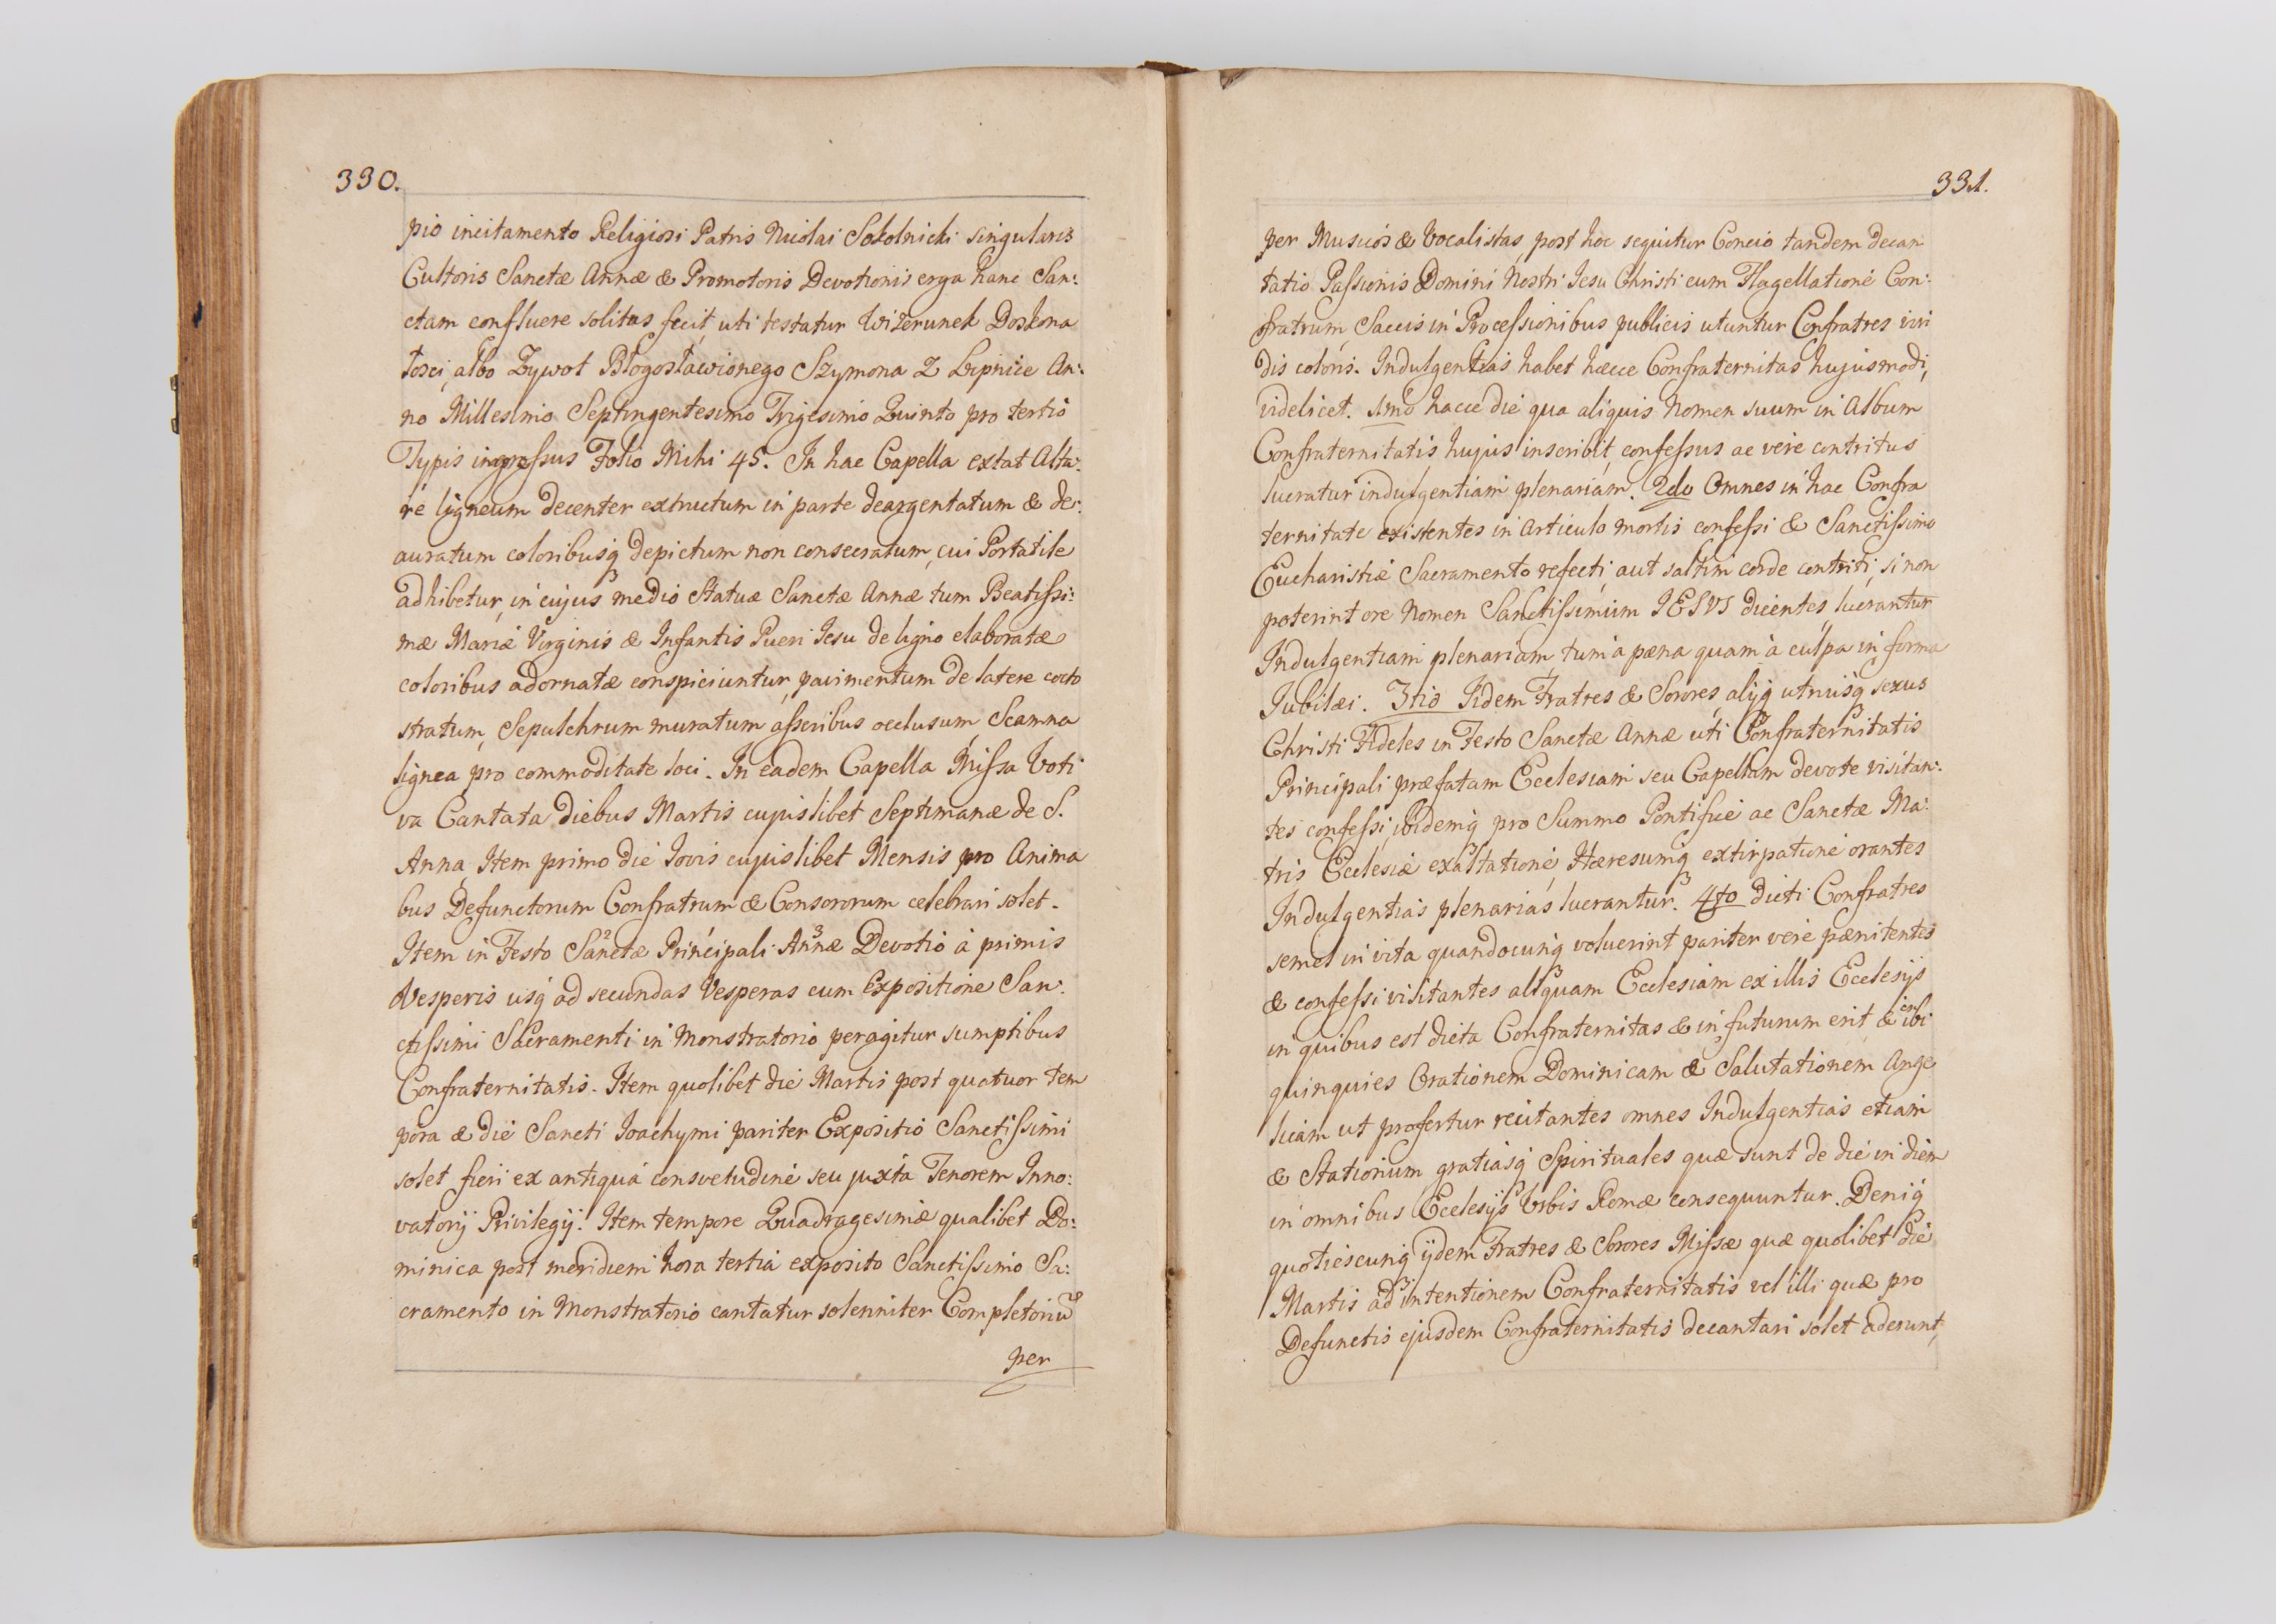 330.
pio incitamento Religiosi Patris Nicolai Sokolnicki singularis
Cultoris Sanctæ Annæ & Promotoris Devotionis erga hanc San:
ctam confluere solitus fecit, uti testatur Wizerunek Doskona
łosci, albo Zywot Błogosławionego Szymona Z Lipnice An:
no Millesimo Septingentesimo Trigesimo Quinto pro tertio
Typis ingressus Folio Mihi 45. In hac Capella extat Alta:
re ligneum decenter extructum in parte deargentatum & de:
auratum coloribusq depictum non consecratum, cui Portatile
adhibetur, in cujus medio Statuæ Sanctæ Annæ tum Beatissi:
mæ Mariæ Virginis & Infantis Pueri Jesu de ligno elaboratæ
coloribus adornatæ conspiciuntur, pavimentum de latere cocto
stratum, Sepulchrum muratum asseribus occlusum, Scamna
lignea pro commoditate loci. In eadem Capella Missa Voti
va Cantata diebus Martis cujuslibet Septimanæ de S.
Anna, Item primo die Jovis cujuslibet Mensis pro Anima
bus Defunctorum Confratrum & Consororum celebrari solet.
Item in Festo Sanctæ 2 Principali Annæ 3 Devotio à primis
Vesperis usq ad secundas Vesperas cum Expositione San:
ctissimi Sacramenti in Monstratorio peragitur sumptibus
Confraternitatis. Item quolibet die Martis post quatuor tem
pora & die Sancti Joachymi pariter Expositio Sanctissimi
solet fieri ex antiqua consvetudine seu juxta Tenorem Inno:
vatorij Privilegij. Item tempore Quadragesimæ qualibet Do:
minica post meridiem hora tertia exposito Sanctissimo Sa:
cramento in Monstratorio cantatur solenniter Completoriũ
per
331.
per Musicos & Vocalistas, post hoc sequitur Concio tandem decan
tatio Passionis Domini Nostri Jesu Christi cum Flagellatione Con:
fratrum, Saccis in Processionibus publicis utuntur Confratres viri
dis coloris. Indulgentias habet hæcce Confraternitas hujusmodi,
videlicet. 1mo hacce die qua aliquis Nomen suum in Album
Confraternitatis hujus inscribit, confessus ac vere contritus
lucratur indulgentiam plenariam. 2do Omnes in hac Confra
ternitate existentes in Articulo mortis confessi & Sanctissimo
Eucharistiæ Sacramento refecti, aut saltim corde contriti, si non
poterint ore Nomen Sanctissimum IESVS dicentes, lucrantur
Indulgentiam plenariam, tum à pæna quam à culpa in forma
Jubilæi. 3tio Iidem Fratres & Sorores, alijq utriusq sexus
Christi Fideles in Festo Sanctæ Annæ uti Confraternitatis
Principali præfatam Ecclesiam seu Capellam devote visitan:
tes confessi, ibidemq pro Summo Pontifice ac Sanctæ Ma:
tris Ecclesiæ exaltatione, Hæresumq extirpatione orantes
Indulgentias plenarias lucrantur. 4to dicti Confratres
semel in vita quandocunq voluerint pariter vere pænitentes
& confessi visitantes aliquam Ecclesiam ex illis Ecclesijs
in quibus est dicta Confraternitas & in futurum erit & ibi
quinquies Orationem Dominicam & Salutationem Ange
licam ut profertur recitantes omnes Indulgentias etiam
& Stationum gratiasq Spirituales quæ sunt de die in diem
in omnibus Ecclesijs Urbis Romæ consequuntur. Deniq
quotiescunq ijdem Fratres & Sorores Missæ quæ quolibet die
Martis ad intentionem Confraternitatis vel illi quæ pro
Defunctis ejusdem Confraternitatis decantari solet aderunt,